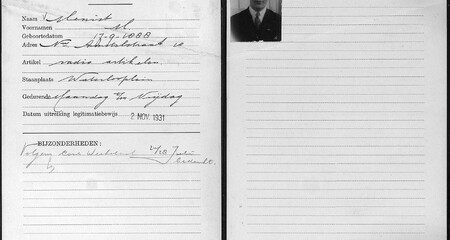 Naam Menist
Voornamen M
Geboortedatum 17-9-1888
Adres Nw. Amstelstraat 10
Artikel radio artikelen
Staanplaats Waterlooplein
Gedurende Maandag t/m Vrijdag
Datum uitreiking legitimatiebewijs 2 NOV. 1931
BIJZONDERHEDEN:
Volgens